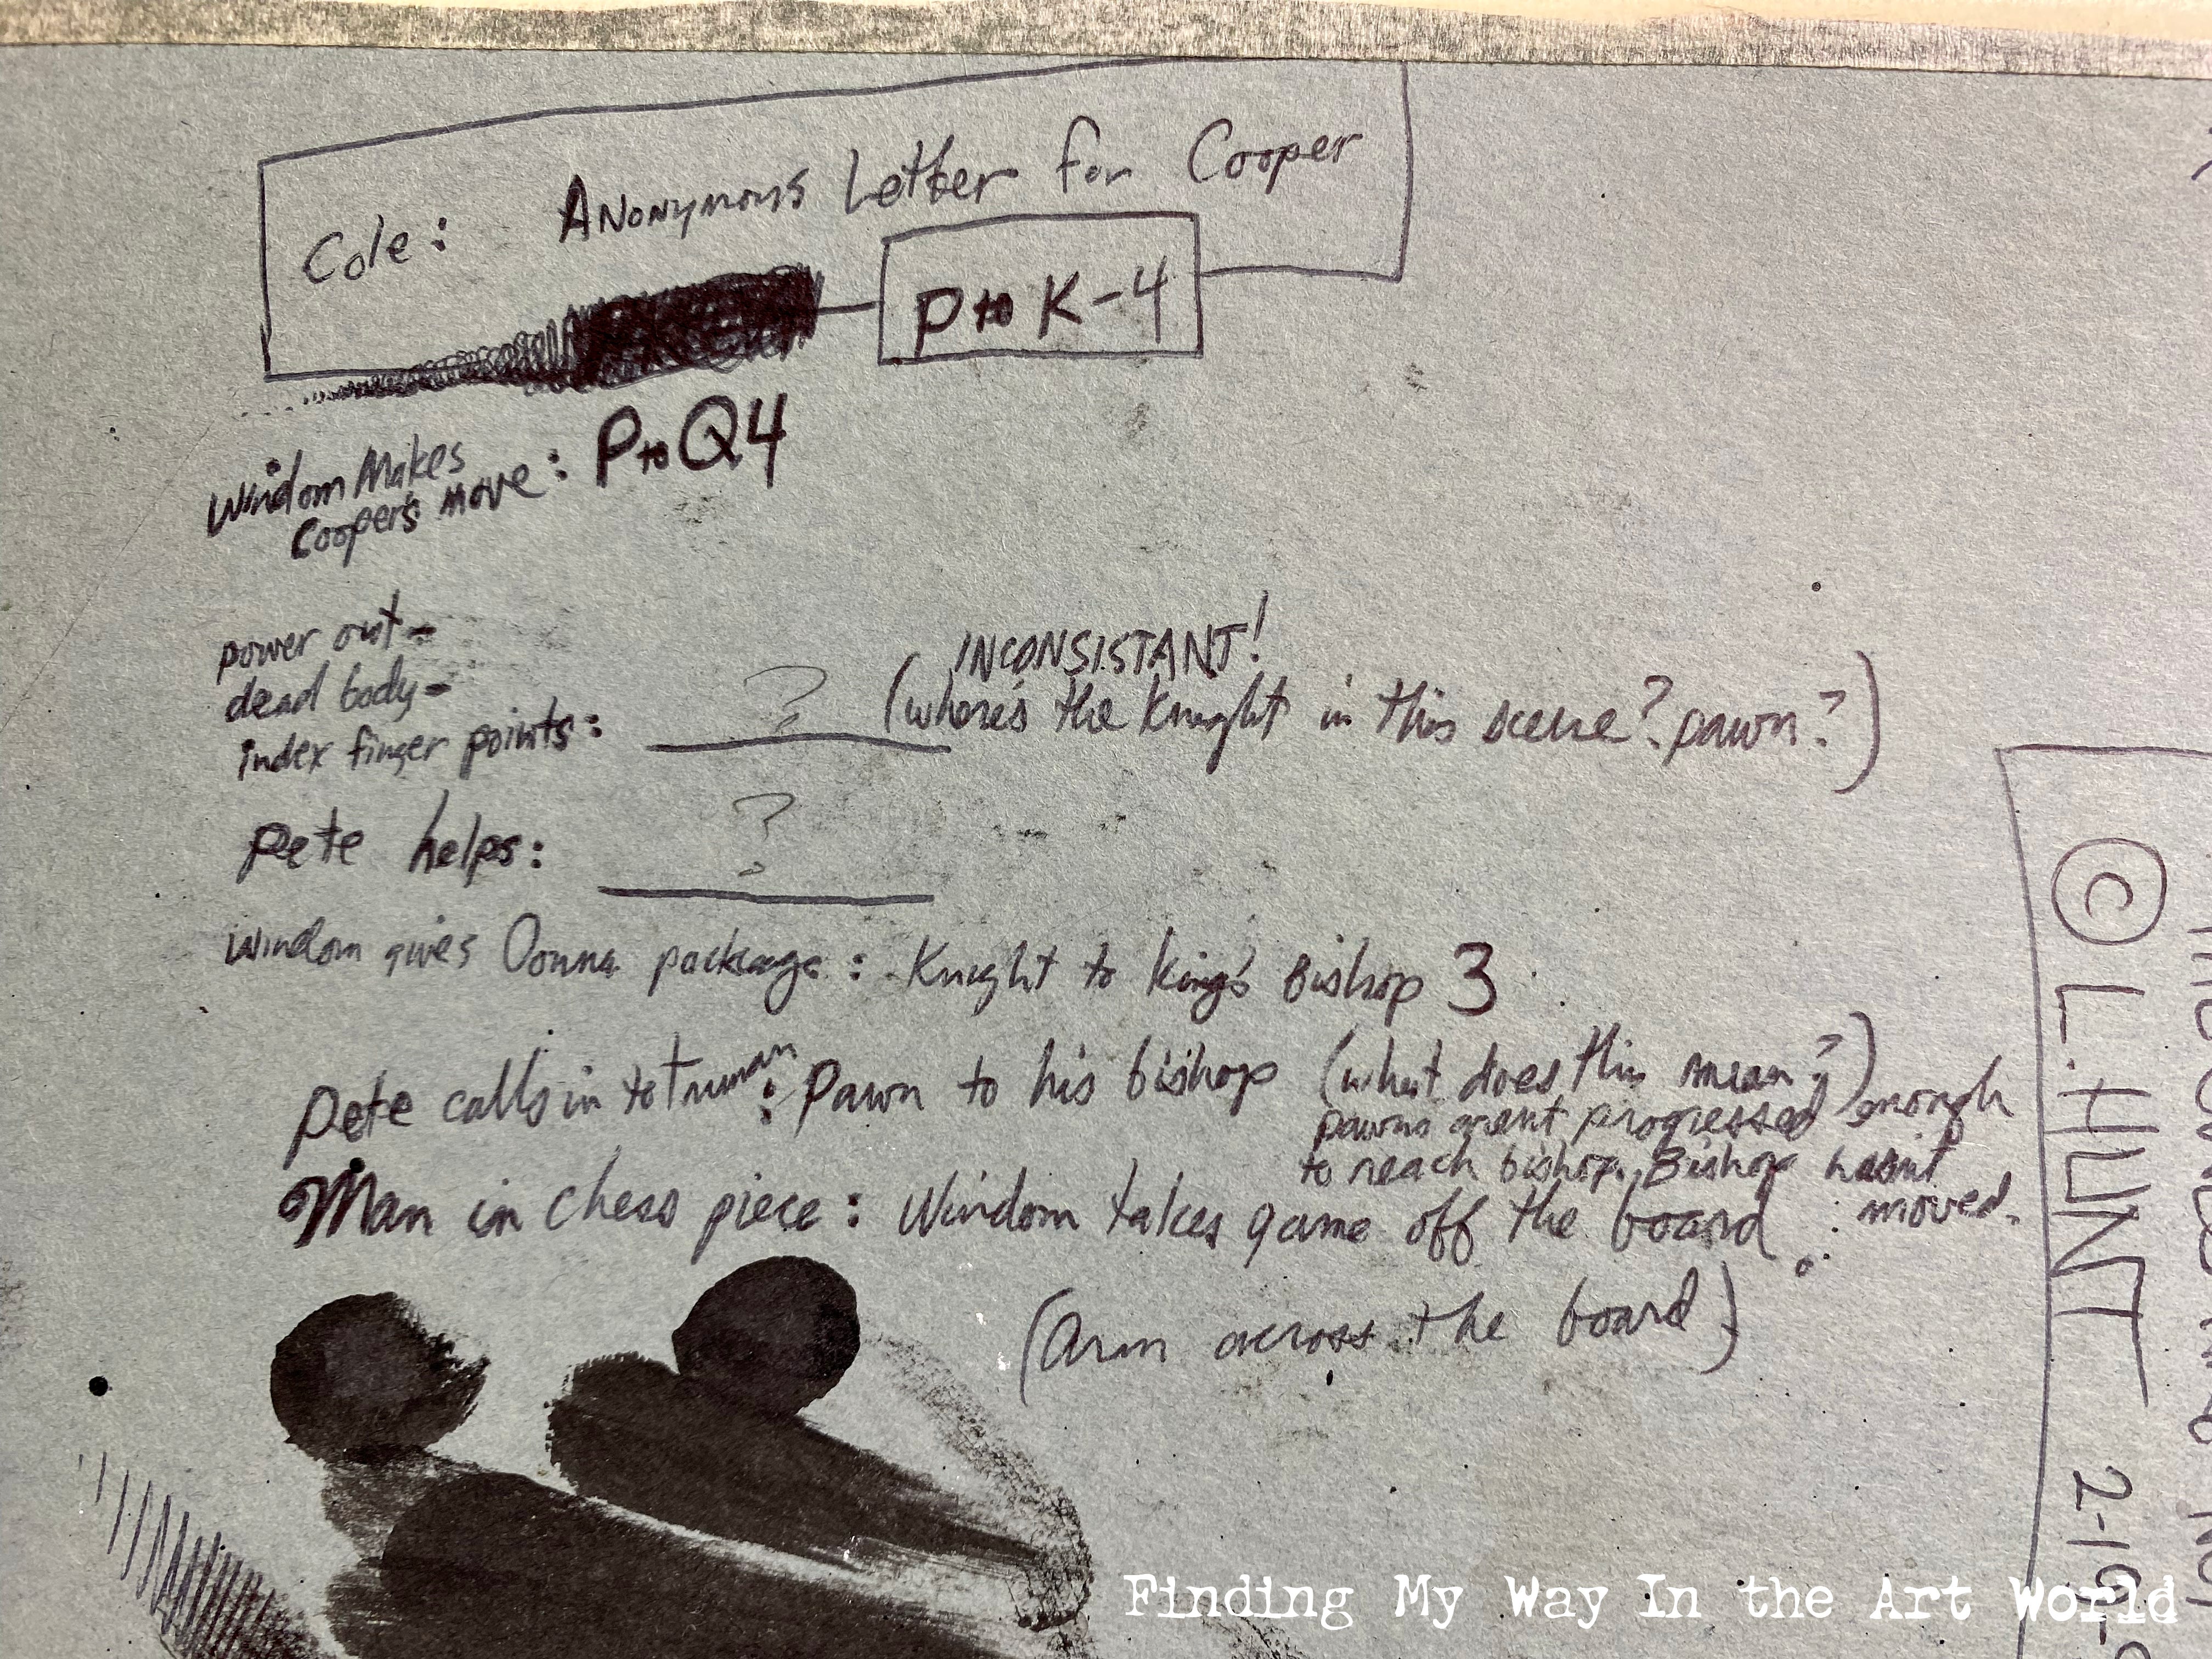 Cole: Anonymous Letter for Cooper
P to K-4
Windom Makes
Cooper's move: P to Q4
power out-
dead body-
index finger points: ?
INCONSISTANT!
(where's the Knight in this scene? pawn?)
Pete helps: ?
Windom gives Donna package: Knight to King's Bishop 3
Pete calls in to Truman: Pawn to his bishop (what does this mean?)
pawns arent progressed enough
to reach bishop. Bishop hasn't
moved.
Man in Chess piece: Windom takes game off the board
(Arm across the board)
© L. HUNT 2-19-9
Finding My Way In the Art World